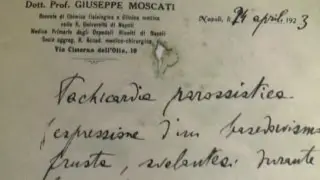 Dott. Prof. GIUSEPPE MOSCATI
Docente di Chimica fisiologica e Clinica medica
nella R. Università di Napoli
Medico Primario degli Ospedali Riuniti di Napoli
Socio aggreg. R. Accad. medico-chirurgica
Via Cisterna dell'Olio, 10
Napoli, li 24 aprile 1923
Tachicardia parossistica
(espressione d'un basedowismo
frusto, svelantesi durante